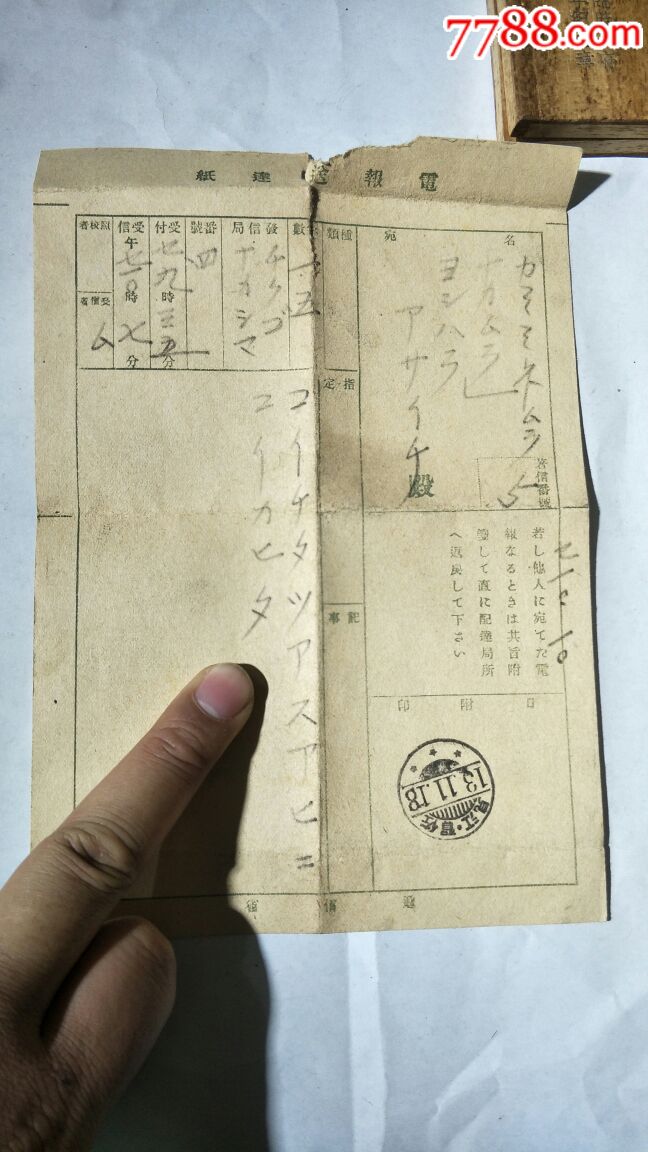 7788.com
電報送達紙
宛名
カミミネムラ
ナカムラ」
ヨシハラ
アサイチ
殿
着信番號
5
若し他人に宛てた電
報なるときは共旨附
箋して直に配達局所
へ返戻して下さい
日附印
13.11.18
種類
指定
記事
發信局
チクゴ
ナカシマ
番號
四
受付
九時三五分
受信
午
時七分
照校者
受信者
ム
コイナタツアスアヒニ
コイカヒタ
遞信省